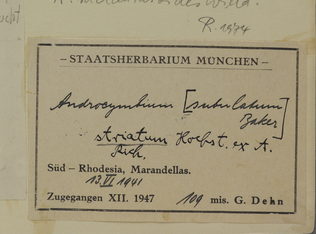 R. 1974
– STAATSHERBARIUM MÜNCHEN –
Androcymbium [subulatum
Baker]
striatum Hochst. ex A.
Rich.
Süd – Rhodesia, Marandellas.
13.VI 1941
Zugegangen XII. 1947 109 mis. G. Dehn